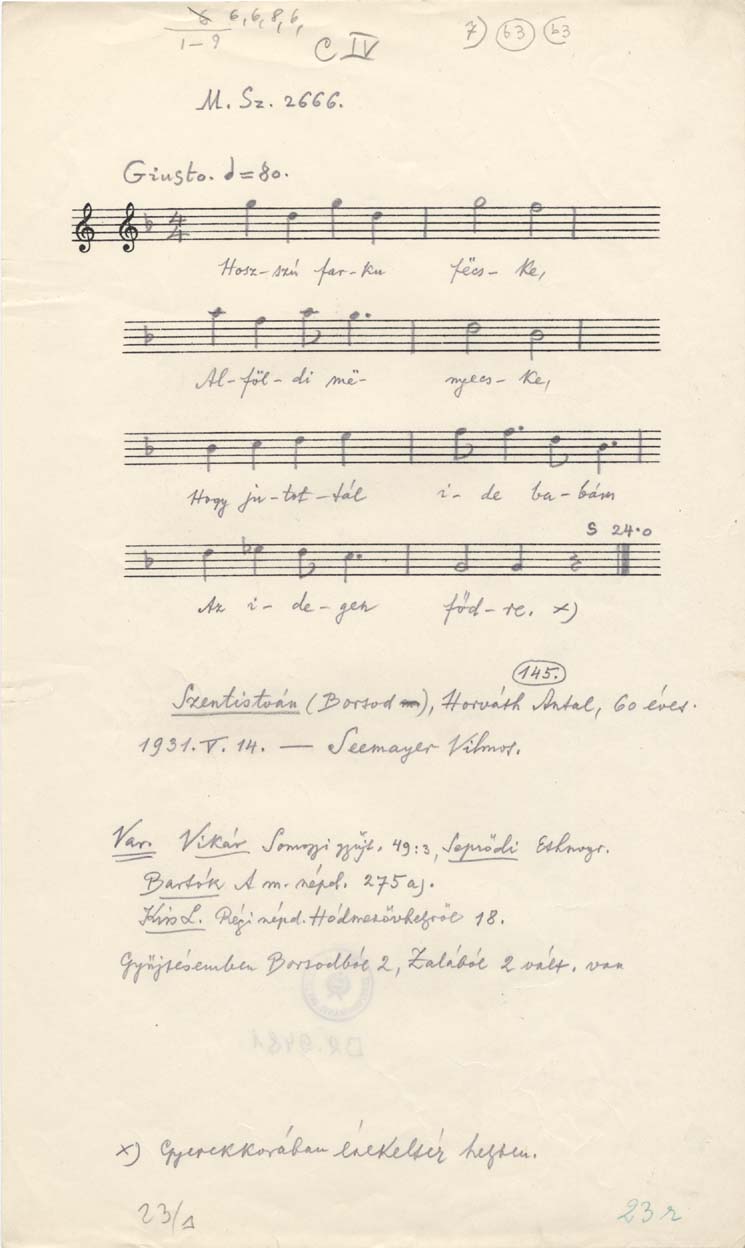 6 6, 6, 8, 6,
1-9
C IV
7) 63 63
M. Sz. 2666.
Giusto. d = 80.
Hosz-szú far-ku fëcs-ke,
Al-föl-di më-nyecs-ke,
Hogy ju-tot-tál i-de ba-bám
S 24·0
Az i-de-gen föd-re. x)
145.
Szentistván (Borsod m), Horváth Antal, 60 éves.
1931. V. 14. — Seemayer Vilmos.
Var. Vikár Somogyi gyűjt. 49:3, Seprődi Ethnogr.
Bartók A m. népd. 275a).
Kiss L. Régi népd. Hódmezővhelyről 18.
Gyűjtésemben Borsodból 2, Zalából 2 vált. van
x) Gyerekkorában énekelték
23/1
23 r